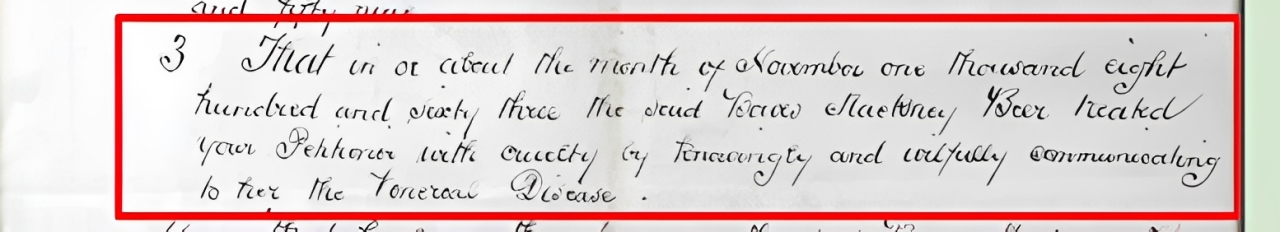 and fifty nine
3 That in or about the month of November one thousand eight
hundred and sixty three the said Beer treated
your Petitioner with cruelty by knowingly and wilfully communicating
to her the Venereal Disease.